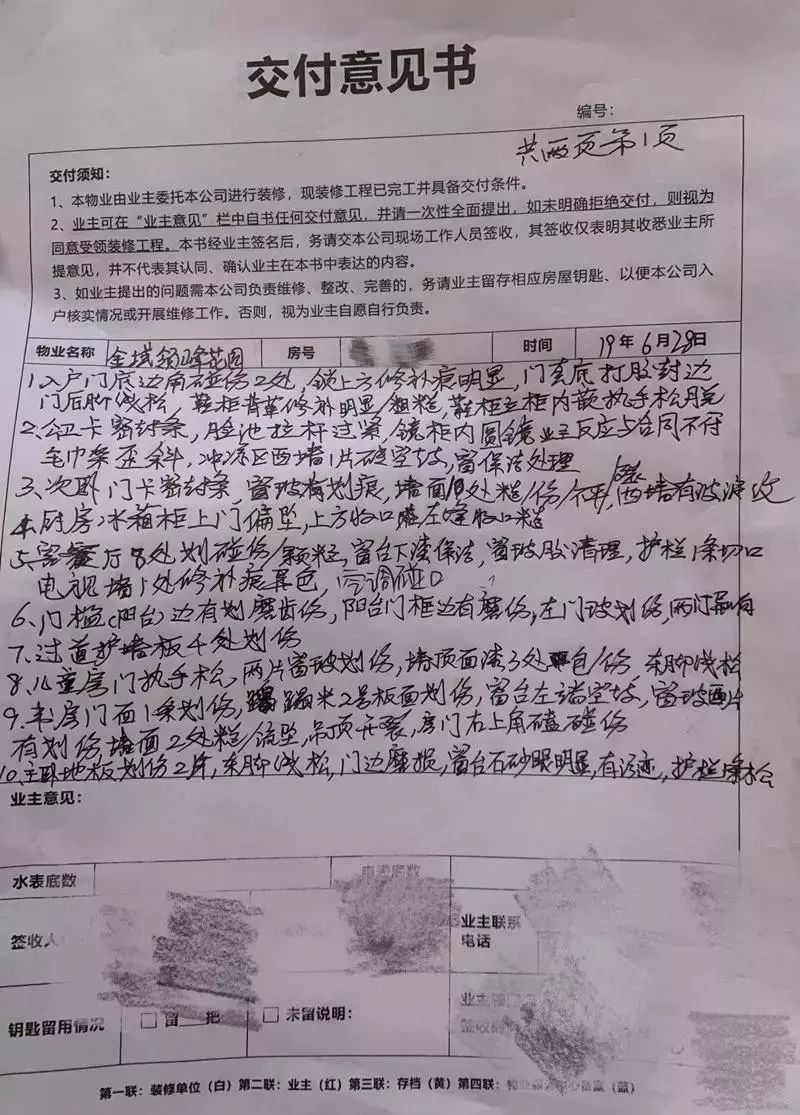 交付意见书
编号：
共两页第1页
交付须知：
1、本物业由业主委托本公司进行装修，现装修工程已完工并具备交付条件。
2、业主可在“业主意见”栏中自书任何交付意见，并请一次性全面提出，如未明确拒绝交付，则视为
同意受领装修工程。本书经业主签名后，务请交本公司现场工作人员签收，其签收仅表明其收悉业主所
提意见，并不代表其认同、确认业主在本书中表达的内容。
3、如业主提出的问题需本公司负责维修、整改、完善的，务请业主留存相应房屋钥匙、以便本公司入
户核实情况或开展维修工作。否则，视为业主自愿自行负责。
物业名称 全域领峰花园 房号 时间 19年6月28日
1.入户门底边角碰伤2处，锁上方修补痕明显，门套底打胶封边
门后脚线松，鞋柜背革修补明显/粗糙，鞋柜立柜内嵌执手松脱
2.公卫卡密封条，脸池拉杆过紧，镜柜内圆镜业主反应与合同不符
毛巾架歪斜，冲凉区西墙1片砖空鼓，窗保洁处理
3.次卧门卡密封条，窗玻有划痕，墙面8处糙/伤/不平，西墙有波浪纹
4.厨房冰箱柜上门偏坠，上方收口左缝收口糙
5.客餐厅8处划碰伤/颗粒，窗台下漆保洁，窗玻胶清理，护栏1条切口
电视墙1处修补痕异色，空调碰口
6.门槛(阳台)边有划磨齿伤，阳台门框边有磨伤，左门玻划伤，两门
7.过道护墙板4处划伤
8.儿童房门执手松，两片窗玻划伤，墙顶面漆3处包/伤 东脚线松
9.书房门面1条划伤，榻榻米2号板面划伤，窗台左端空鼓，窗玻两片
有划伤，墙面2处糙/流坠，吊顶开裂，房门右上角碰伤
10.主卧地板划伤2片，东脚线松，门边磨损，窗台石砂眼明显，有污迹，护栏1条松
业主意见：
水表底数 电表底数
签收人 业主联系
电话
钥匙留用情况 □留 把 □未留说明：
签收
第一联：装修单位（白）第二联：业主（红）第三联：存档（黄）第四联：（蓝）